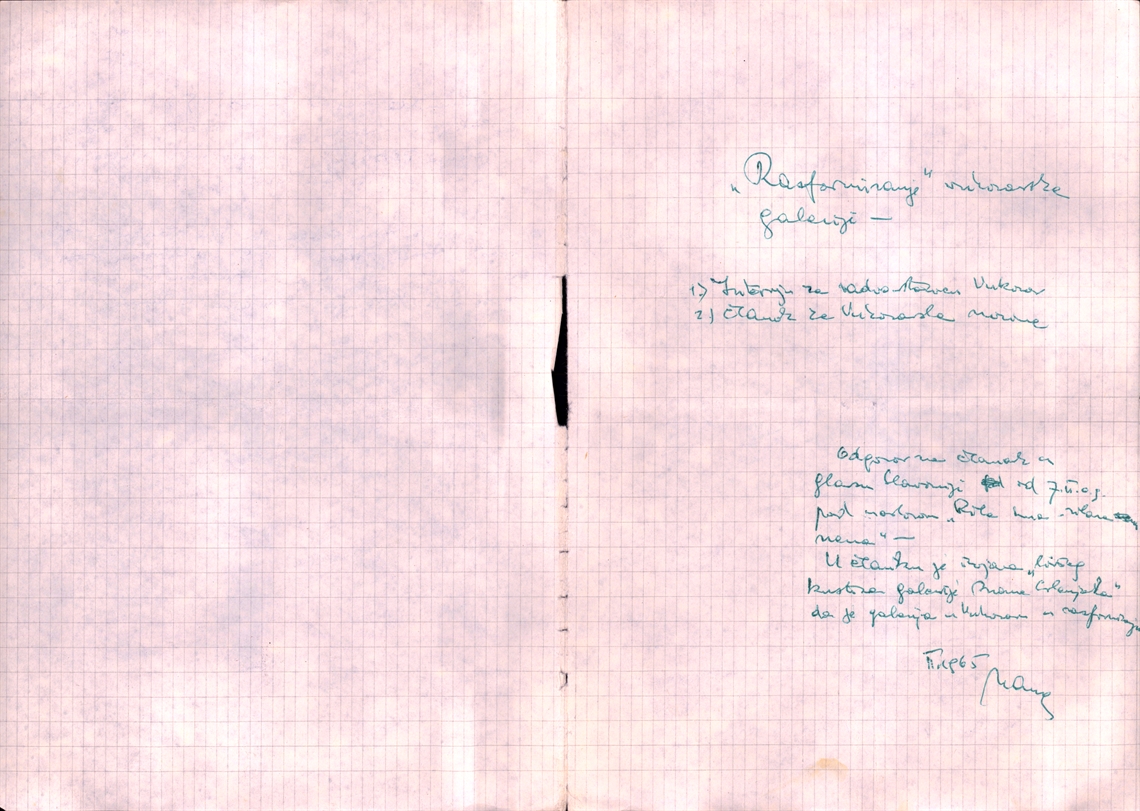 „Rasformiranje" vukovarske
galerije —
1.) Intervju za radio-stanicu Vukovar
2.) Članak za Vukovarske novine
Odgovor na članak u
glasu Slavonije od 7.II.o.g.
pod naslovom „Bila
nema" —
U članku je izjava „bivšeg
kustosa galerije
da je galerija u Vukovaru u rasformiranju
II.1965